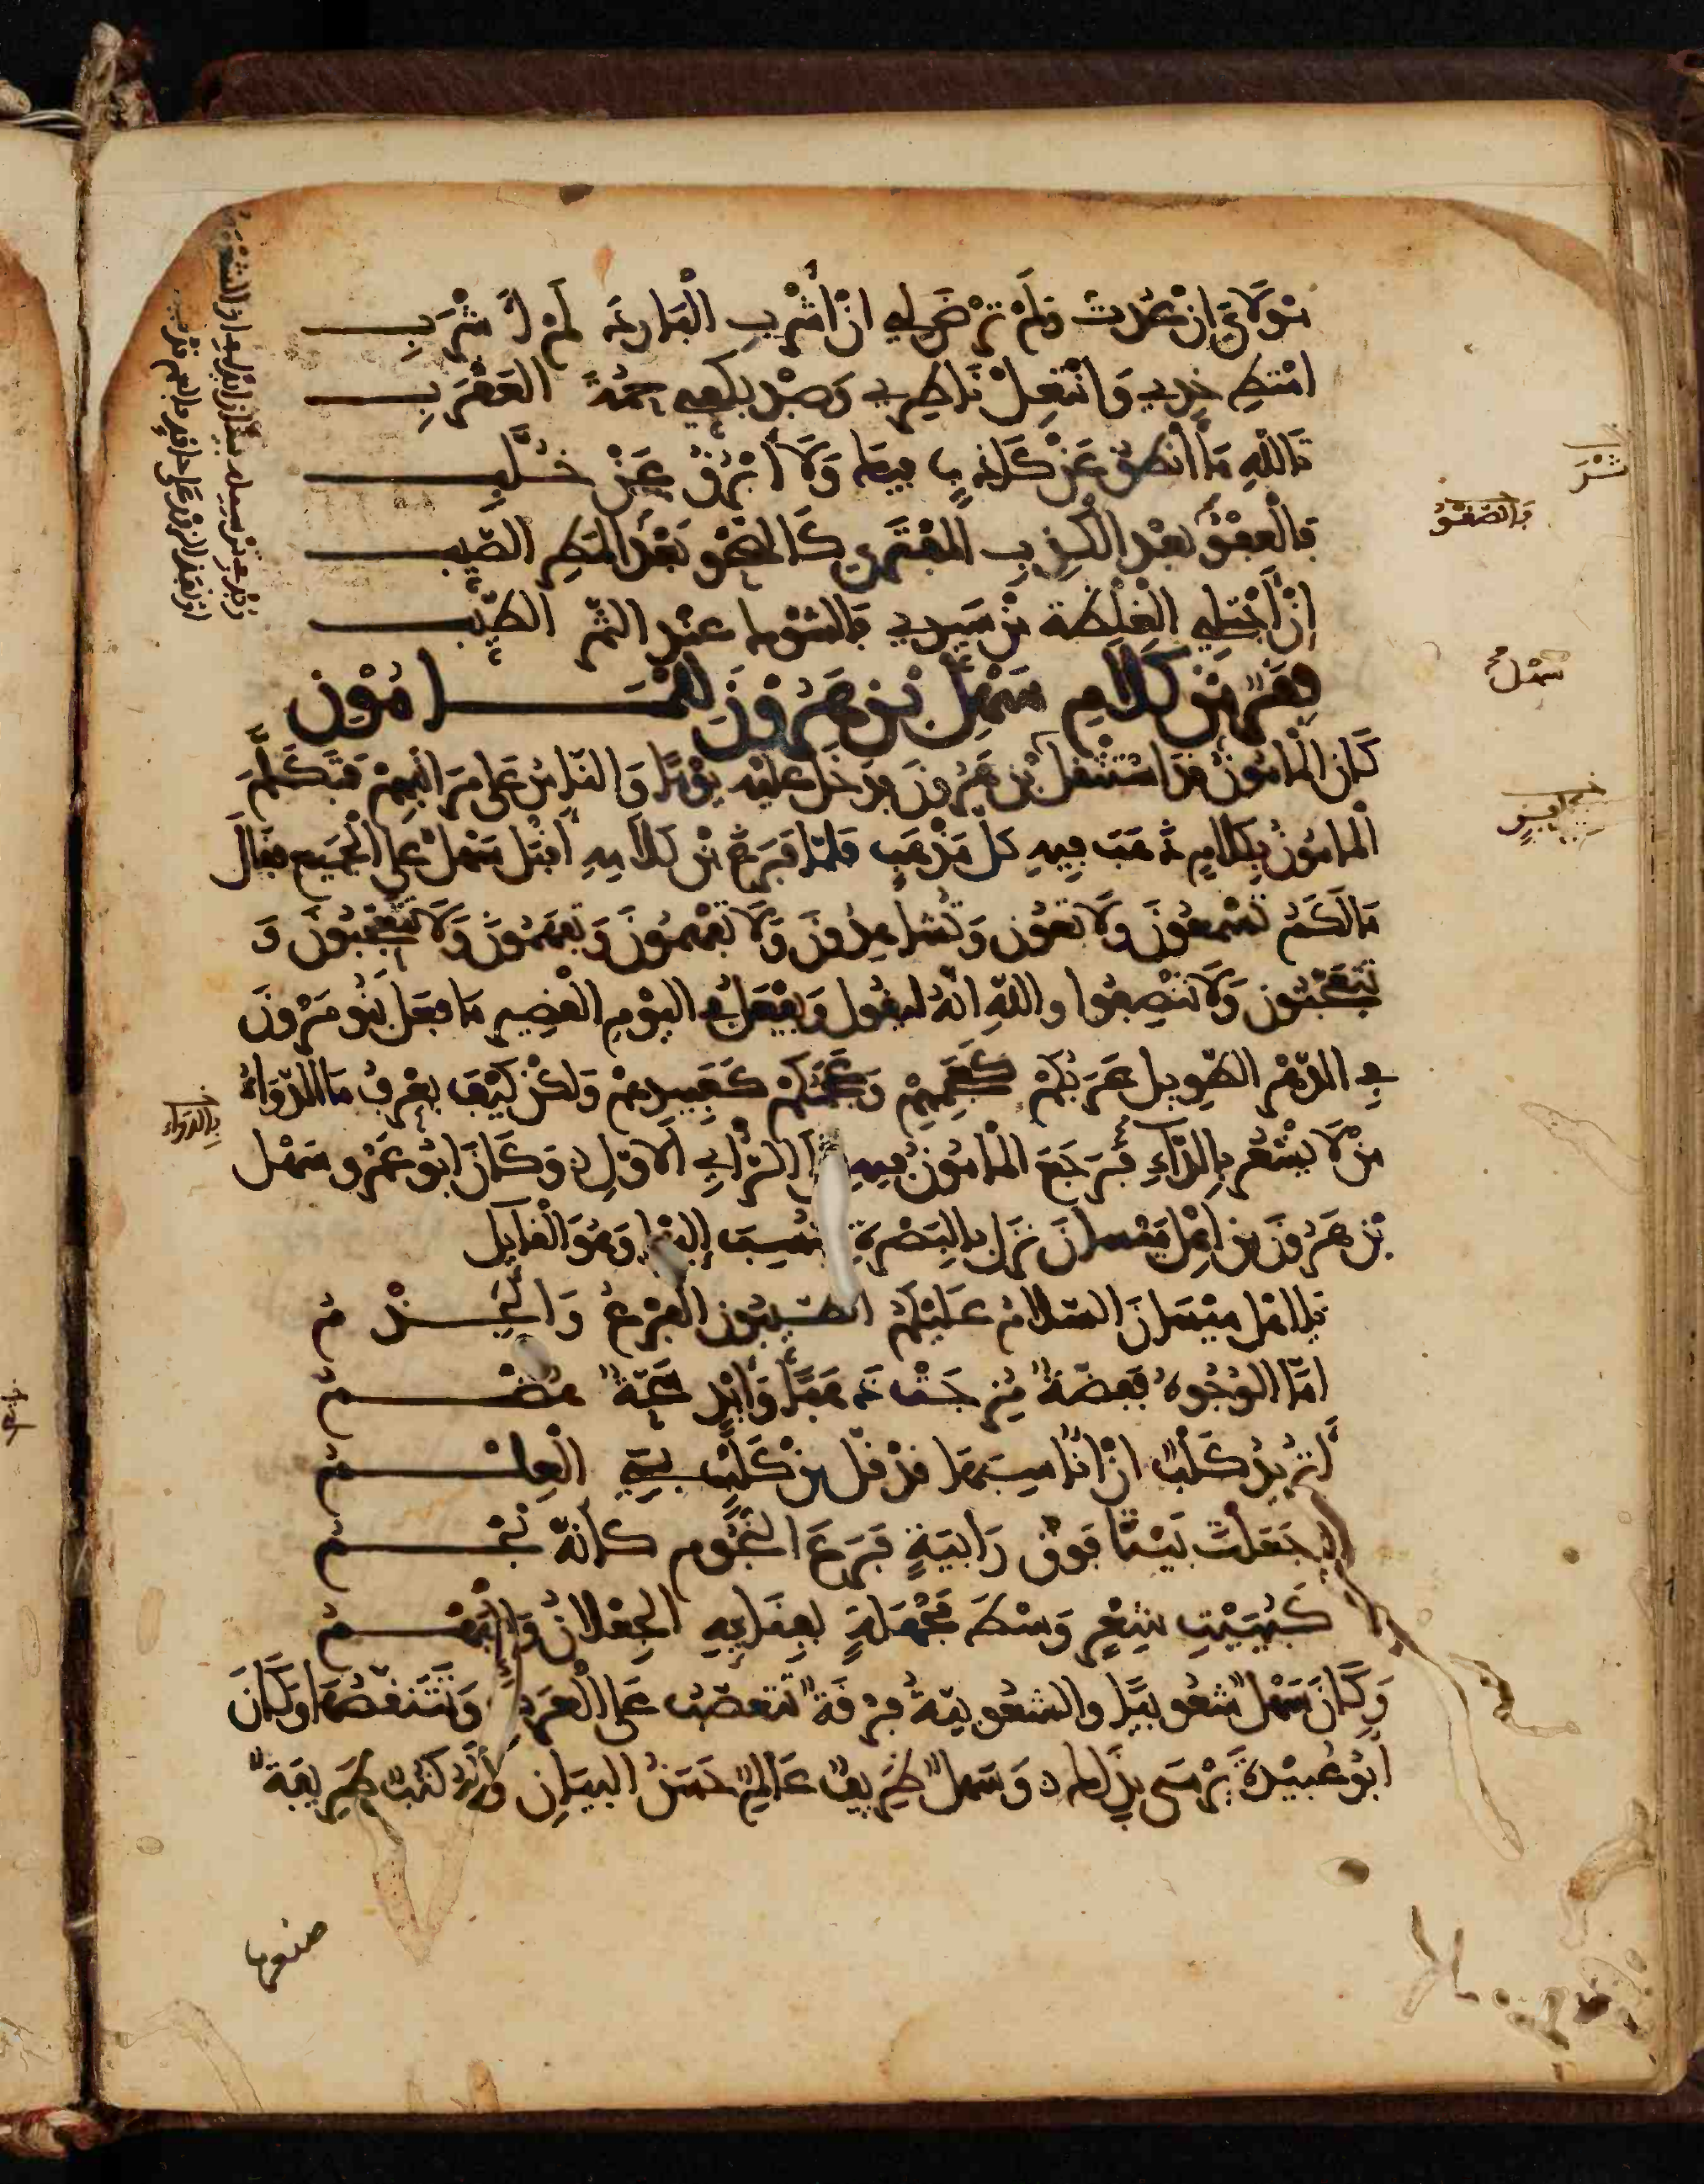 مولاي إن عدت ولم ترض لي أن أشرب البارد لم أشرب
امتط خدي وانتعل ناظري وصد بكفي حمة العقرب
تالله ما أنطق عن كاذب فيك ولا أبرق عن خلب
فالعفو بعد الكذب المفترى كالصحو بعد المطر الصيب
إن أجتني الغلظة من سيدي فالشوك عند الثمر الطيب
فقر من كلام سهل بن هرون للمامون
كان المامون قد استثقل بن هرون فدخل عليه يوما والناس على مراتبهم فتكلم
المامون بكلام ذهب فيه كل مذهب فلما فرغ من كلامه أقبل سهل على الجميع فقال
ما لكم تسمعون ولا تعون وتشاهدون ولا تفهمون وتفهمون ولا تتعجبون و
تتعجبون ولا تنصفوا والله انه ليقول ويفعل في اليوم القصير ما فعل بنو مرون
في الدهر الطويل عربكم كعجمهم وعجمكم كعبيدهم ولكن كيف يعرف ما الدواء
من لا يشعر بالداء فرجع المامون فيه الى الرأي الاول وكان ابو عمرو سهل
بن هرون من اهل ميسان نزل بالبصرة فنسب إليها وهو القايل
يا اهل ميسان السلام عليكم الطيبون الفرع والجذم
اما الوجوه ففضة مزجت ذهبا وأيد سحة هضم
أتريد كلب ان أناسبها قد قل من كلب بني العلم
اجعلت بيتا فوق رابية فرع النجوم كأنه نجم
كبييت شعر وسط مجهلة بفنايه الجعلان والبهم
وكان سهل شعوبيا والشعوبية فرقة تتعصب على العرب وتتنقصها وكان
ابو عبيدة يرمى بذلك وسهل ظريف عالم حسن البيان وله كتب ظريفة
صنعها
سهل صح
بالدواء